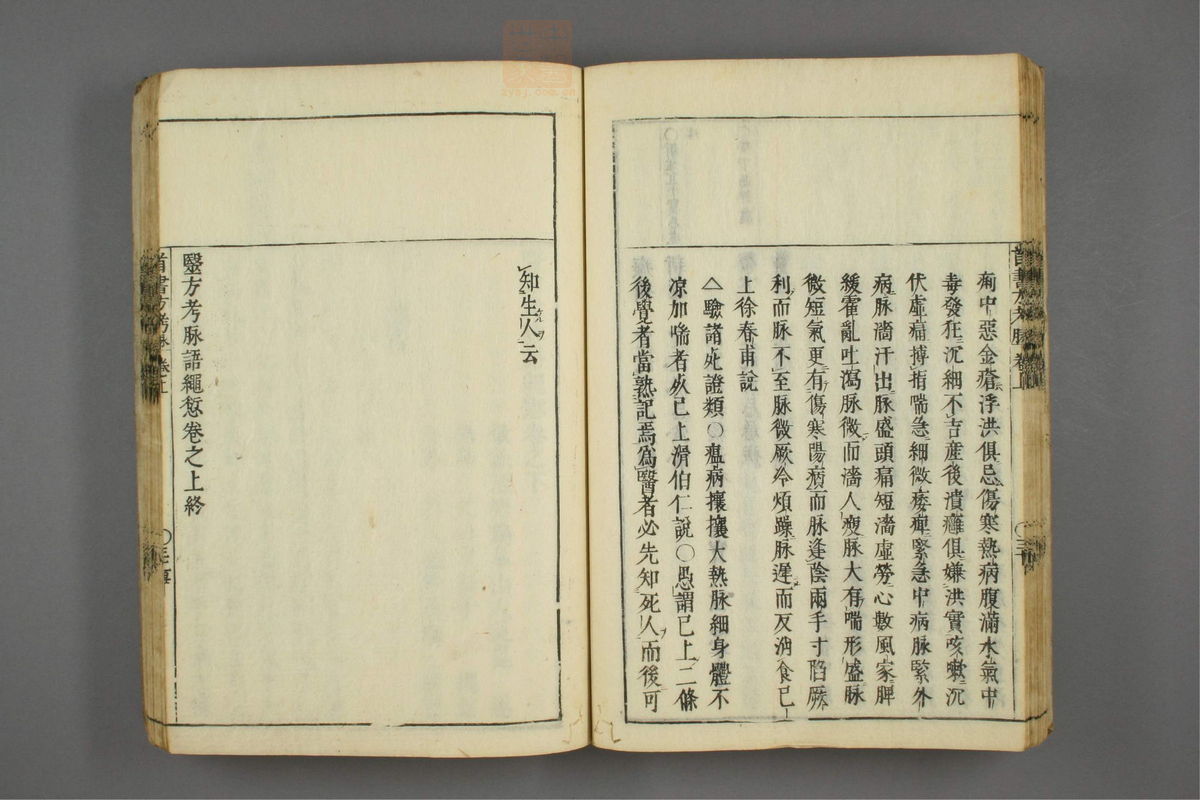 痢中惡金瘡浮洪俱忌傷寒熱病腹滿水氣中
毒發狂沉細不吉産後潰癰俱嫌洪實咳嗽沉
伏虛痛搏指喘急細微痿痺緊急中病脉緊外
病脉濇汗出脉盛頭痛短濇虛勞心數風家脾
緩霍亂吐瀉脉微而濇人瘦脉大有喘形盛脉
微短氣更有傷寒陽病而脉逢陰兩手寸陷厥
利而脉不至脉微厥冷煩躁脉遲而反消食已
上徐春甫說
△驗諸死證類〇瘟病攘攘大熱脉細身體不
凉加喘者死已上滑伯仁說〇愚謂已上二條
後覺者當熟記焉爲醫者必先知死人而後可
首書方考脉 卷上
知生人云
毉方考脉語繩愆卷之上終
首書方考脉 卷上